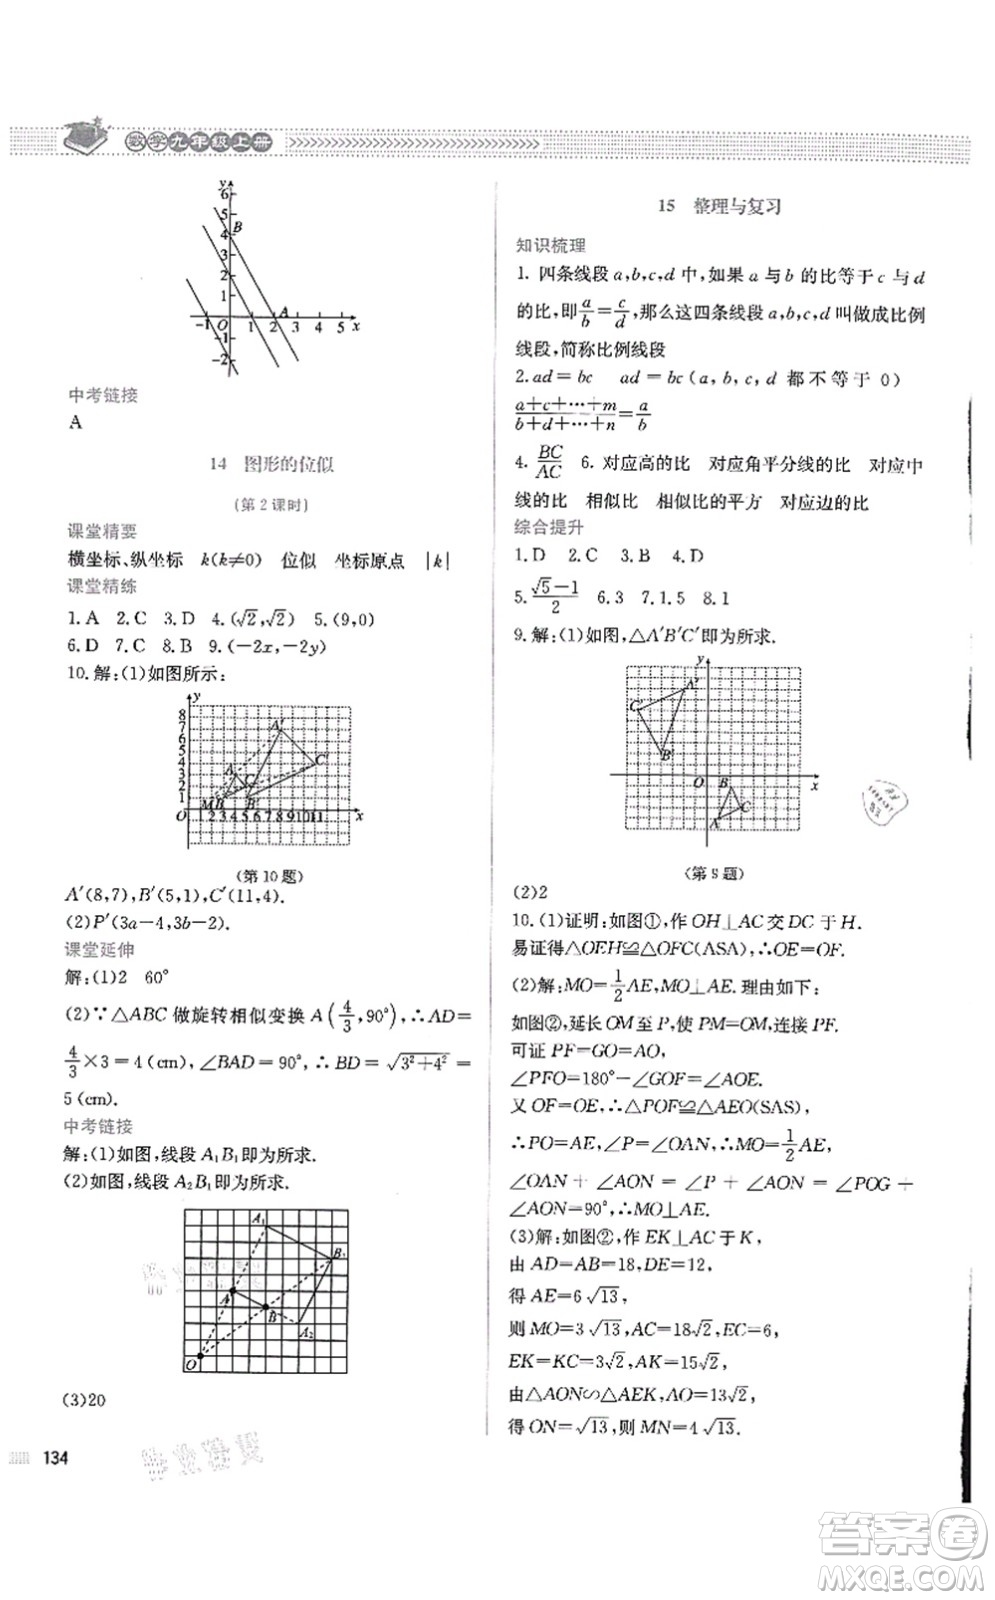 数学九年级上册
y
6
5
4
3
2
1
B
A
-1 O 1 2 3 4 5 x
-1
-2
中考链接
A
14 图形的位似
(第2课时)
课堂精要
横坐标、纵坐标 k(k≠0) 位似 坐标原点 |k|
课堂精练
1.A 2.C 3.D 4.(√2,√2) 5.(9,0)
6.D 7.C 8.B 9.(-2x,-2y)
10.解:(1)如图所示:
y
8
7
6
5
4
3
2
1
A′
C′
A
C
M B B′
O 1 2 3 4 5 6 7 8 9 10 11 x
(第10题)
A′(8,7),B′(5,1),C′(11,4).
(2)P′(3a-4,3b-2).
课堂延伸
解:(1)2 60°
(2)∵△ABC 做旋转相似变换 A(4/3,90°),∴AD=
4/3×3=4(cm),∠BAD=90°,∴BD=√(3²+4²)=
5(cm).
中考链接
解:(1)如图,线段 A₁B₁即为所求.
(2)如图,线段 A₂B₁即为所求.
A₁
B₁
A
B
A₂
O
(3)20
134
15 整理与复习
知识梳理
1. 四条线段 a,b,c,d 中,如果 a 与 b 的比等于 c 与 d
的比,即a/b=c/d,那么这四条线段 a,b,c,d 叫做成比例
线段,简称比例线段
2.ad=bc ad=bc(a,b,c,d 都不等于 0)
(a+c+⋯+m)/(b+d+⋯+n)=a/b
4.BC/AC 6. 对应高的比 对应角平分线的比 对应中
线的比 相似比 相似比的平方 对应边的比
综合提升
1.D 2.C 3.A 4.D
5.(√5-1)/2 6.3 7.1.5 8.1
9.解:(1)如图,△A′B′C′即为所求.
y
A′
C′
B′
O B x
C
A
(第9题)
(2)2
10.(1)证明:如图①,作 OH⊥AC 交 DC 于 H.
易证得△OEH≌△OFC(ASA),∴OE=OF.
(2)解:MO=1/2AE,MO⊥AE.理由如下:
如图②,延长 OM 至 P,使 PM=OM,连接 PF.
可证 PF=GO=AO,
∠PFO=180°-∠GOF=∠AOE.
又 OF=OE,∴△POF≌△AEO(SAS),
∴PO=AE,∠P=∠OAN,∴MO=1/2AE,
∠OAN+∠AON=∠P+∠AON=∠POG+
∠AON=90°,∴MO⊥AE.
(3)解:如图②,作 EK⊥AC 于 K,
由 AD=DC=18,DE=12,
得 AE=6√13,
则 MO=3√13,AC=18√2,EC=6,
EK=KC=3√2,AK=15√2,
由△AON∽△AEK,AO=13√2,
得 ON=√13,则 MN=4√13.
答案圈
MXQE.COM